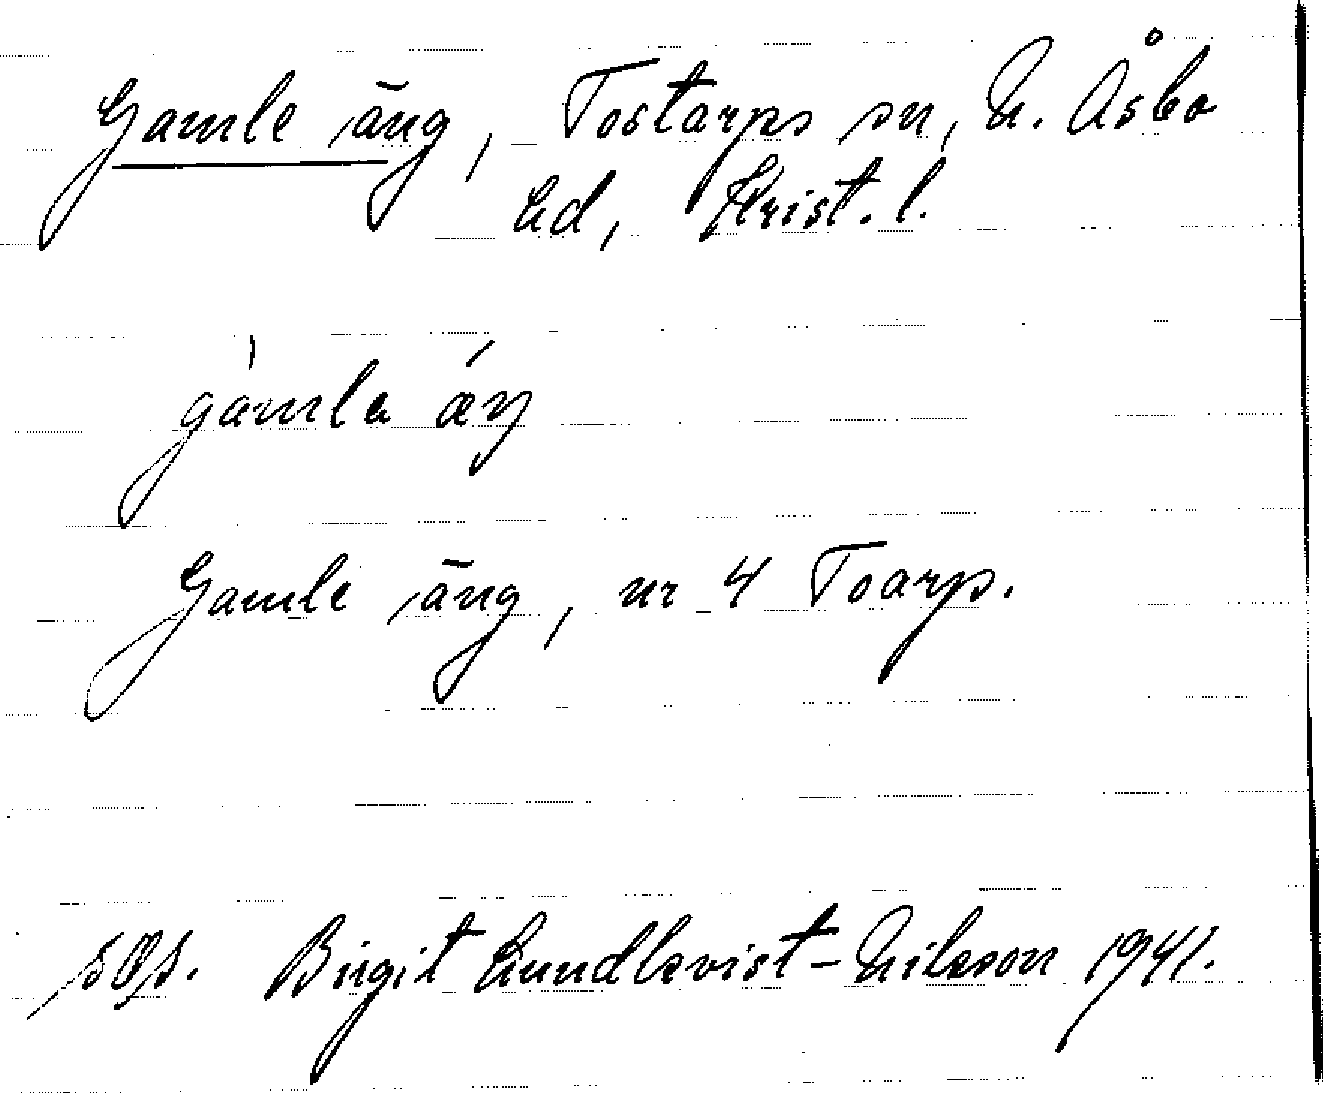 Gamle äng, Tostarps sn, N. Åsbo
hd, Krist. l.
gamla äŋ
Gamle äng, nr 4 Toarp.
Birgit Lundkvist-Nilsson 1941.